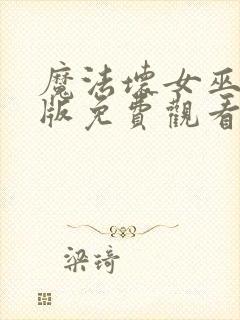 魔法壞女巫
版免費觀看
梁琦